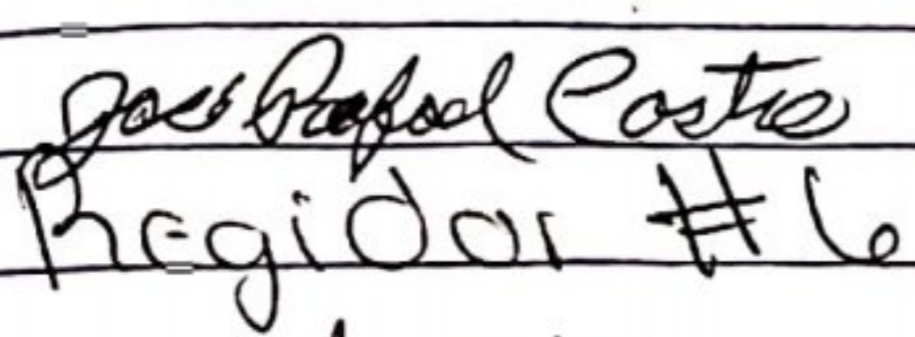 Jose Rafael Castro
Regidor #6